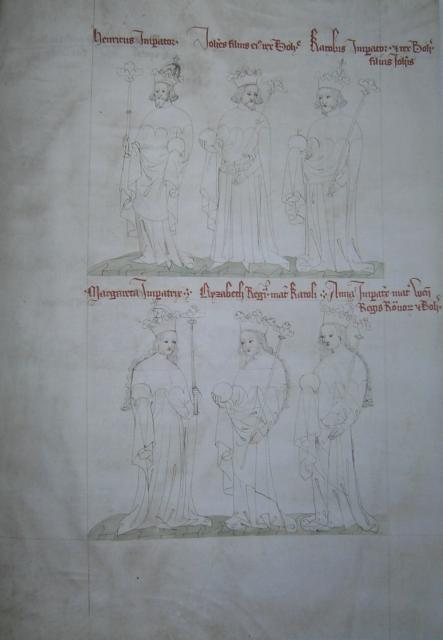 Henricus Imperator
Johes filius ei rex Boh
Karolus Imperator et rex Boh
filius Johis
Margareta Imperatrix
Elyzabeth Regina mat Karoli
Anna Imperatrix mat Wen
Regis Roor et Boh